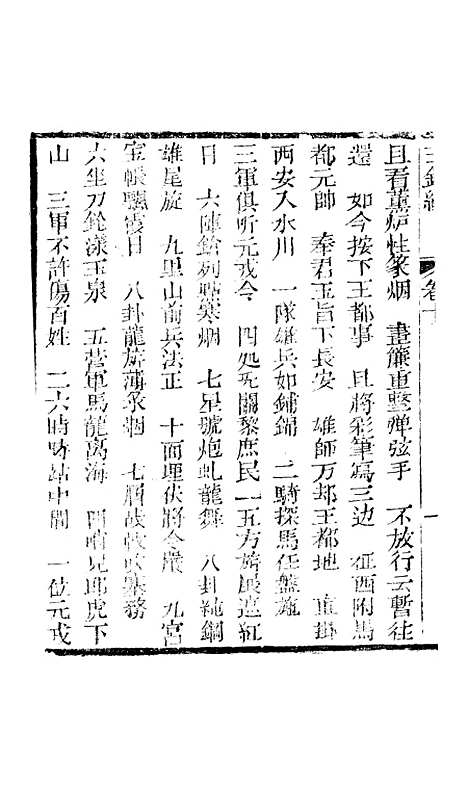 卷十 一
且看薰炉性篆烟 畫簾重整弹弦手 不放行云暫徃
還 如今按下王都事 且將彩筆寫三边 征西附馬
都元帥 奉君玉旨下長安 雄師万邦王都地 直掛
西安入水川 一隊雄兵如鋪錦 二騎探馬任盤旋
三軍俱听元戎令 四処旡關黎庶民 五方旂展遮紅
日 六陣鎗列點寒烟 七星號炮虬龍舞 八卦純鋼
雄尾旋 九里山前兵法正 十面埋伏將令嚴 九宮
宝帳飄霞日 八卦龍旂薄衆烟 七層鼓
六坐刀鎗漾玉泉 五營軍馬龍离海 四哨児郎虎下
山 三軍不許傷百姓 二六時 站中間 一位元戎